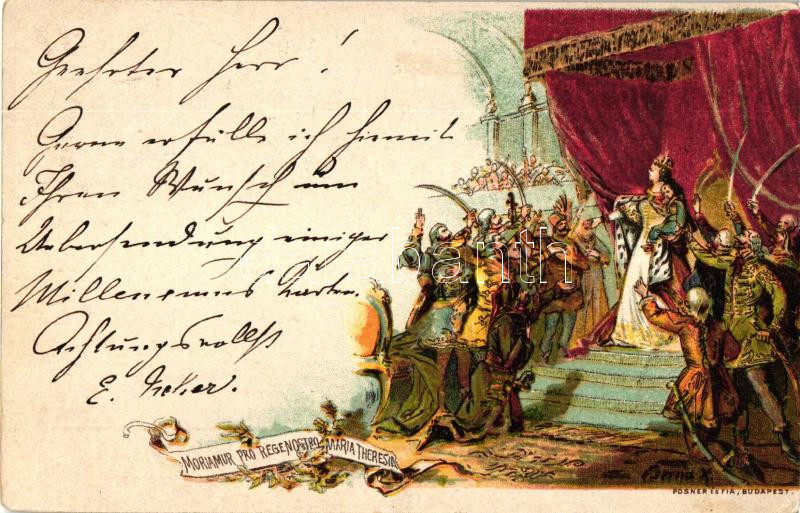 Geehrter Herr!
Gerne erfülle ich hiemit
Ihren Wunsch um
Uebersendung einiger
Millenniums Karten.
Achtungsvollst
E.
MORIAMUR PRO REGE NOSTRO MARIA THERESIA
POSNER ES FIA, BUDAPEST.